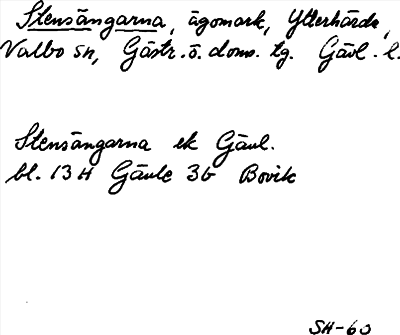 Stensängarna, ägomark, Ytterhärde,
Valbo sn, Gästr. ö. doms. tg. Gävl. l.
Stensängarna ek Gävl.
bl. 13 H Gävle 3b Bovik
SH-60